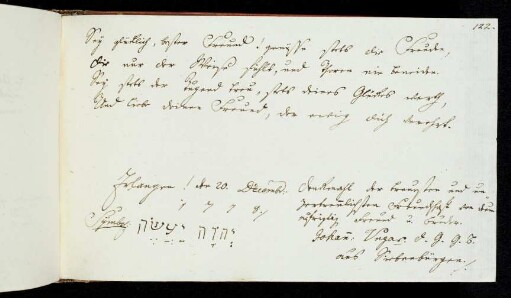 122.
Sey glücklich, bester Freund! genieße stets die Freude,
die nur der Weise fühlt, und Thoren nie beneiden.
Sey stets der Tugend treu, stets deines Glückes werth,
Und liebe deinen Freund, der ewig dich verehrt.
Erlangen! den 20. Decemb.
1787
Symbol. יְהֹוָה
Denkmahl der treuesten und un
zertrennlichsten Freundschaft von deinem
aufrichtig Freund u. Bruder.
Johann Ungar d. G. G. B.
aus Siebenbürgen.